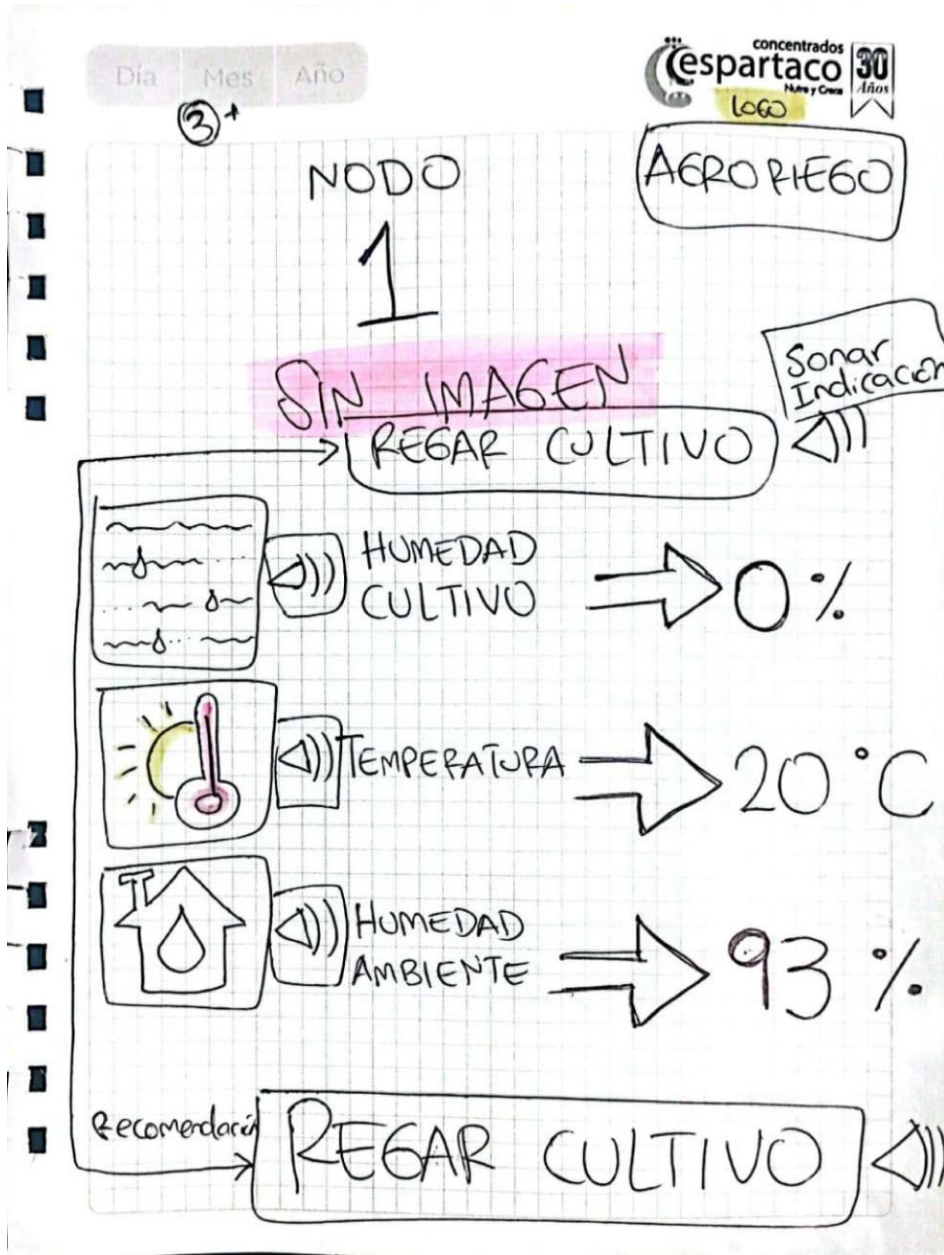 Día Mes Año
concentrados
espartaco
Nutre y Crece
30
Años
LOGO
3+
NODO
AGRORIEGO
1
SIN IMAGEN
Sonar
Indicación
REGAR CULTIVO
HUMEDAD
CULTIVO
0%
TEMPERATURA
20°C
HUMEDAD
AMBIENTE
93%
Recomendación
REGAR CULTIVO